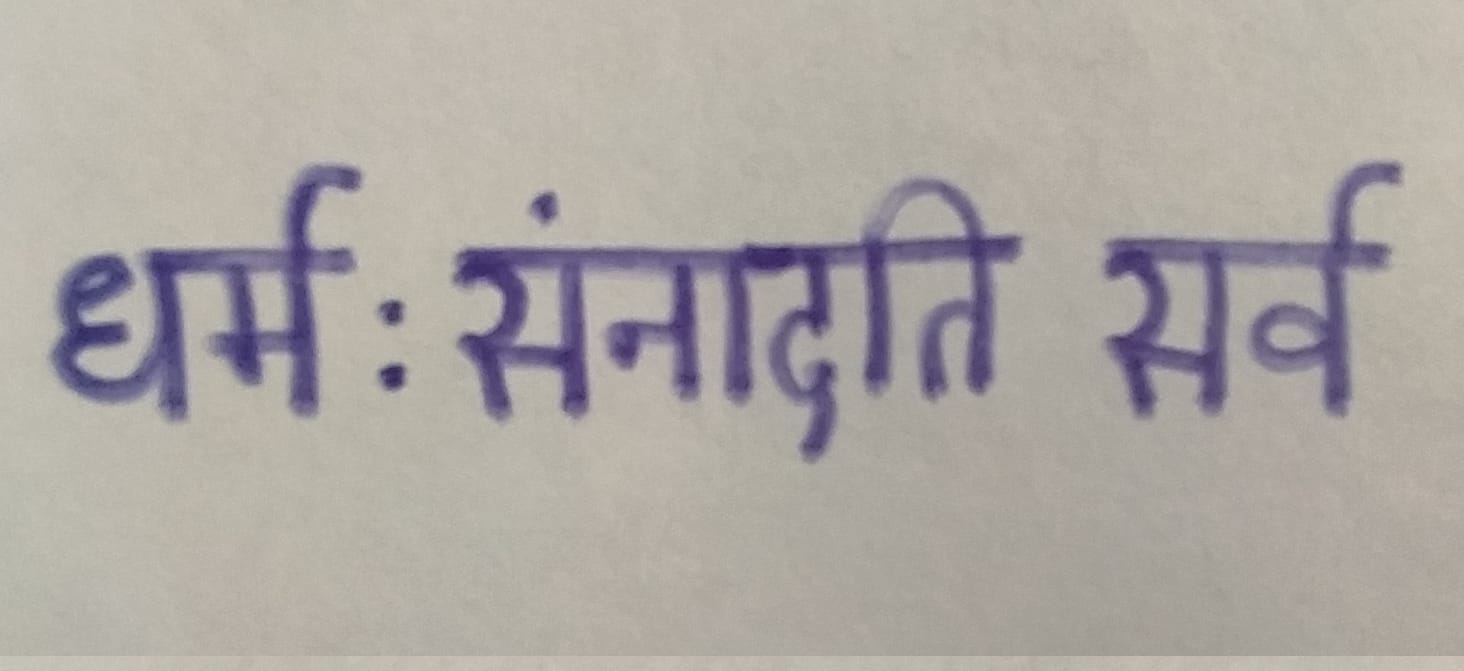 धर्म: संनादति सर्व